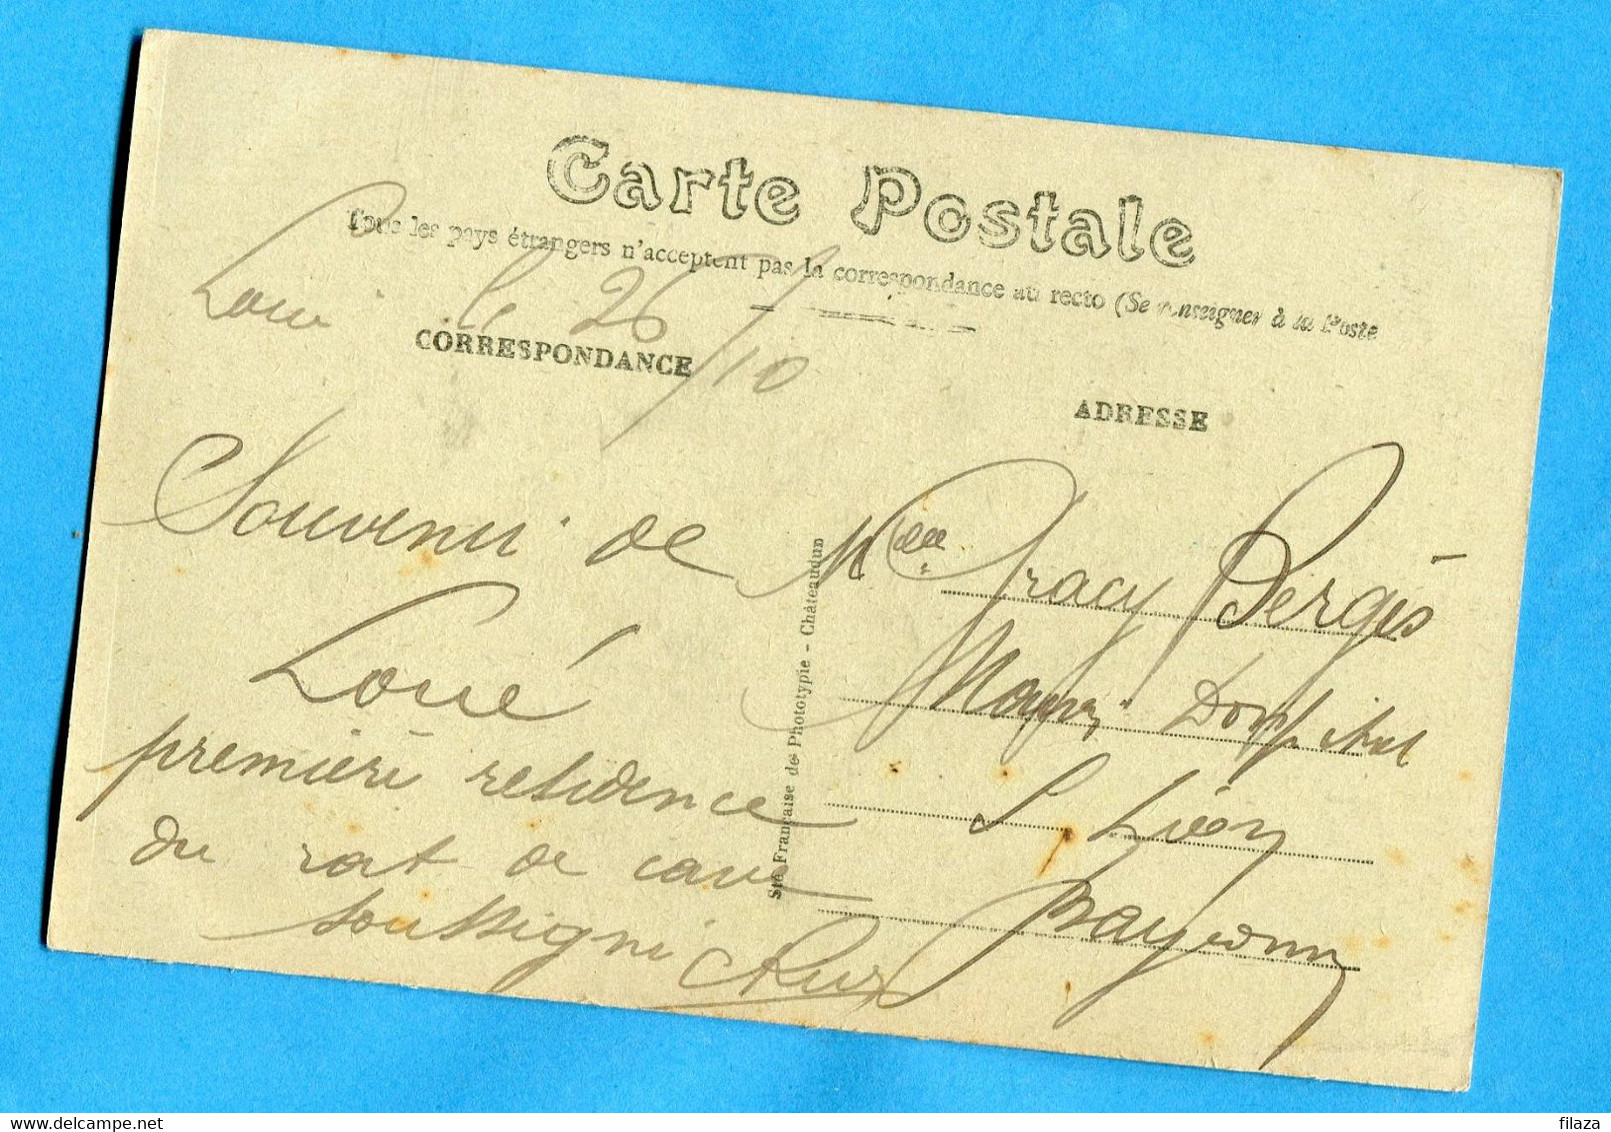 Carte Postale
Tous les pays étrangers n'acceptent pas la correspondance au recto (Se renseigner à la Poste
Loué le 26/10
CORRESPONDANCE
ADRESSE
Souvenir de
Loué
première residence
du rat de cave
soussigné
Mlle Gracy Bergès
S. Léon
Bayonne
Sté Française de Phototypie - Châteaudun
www.delcampe.net
filaza